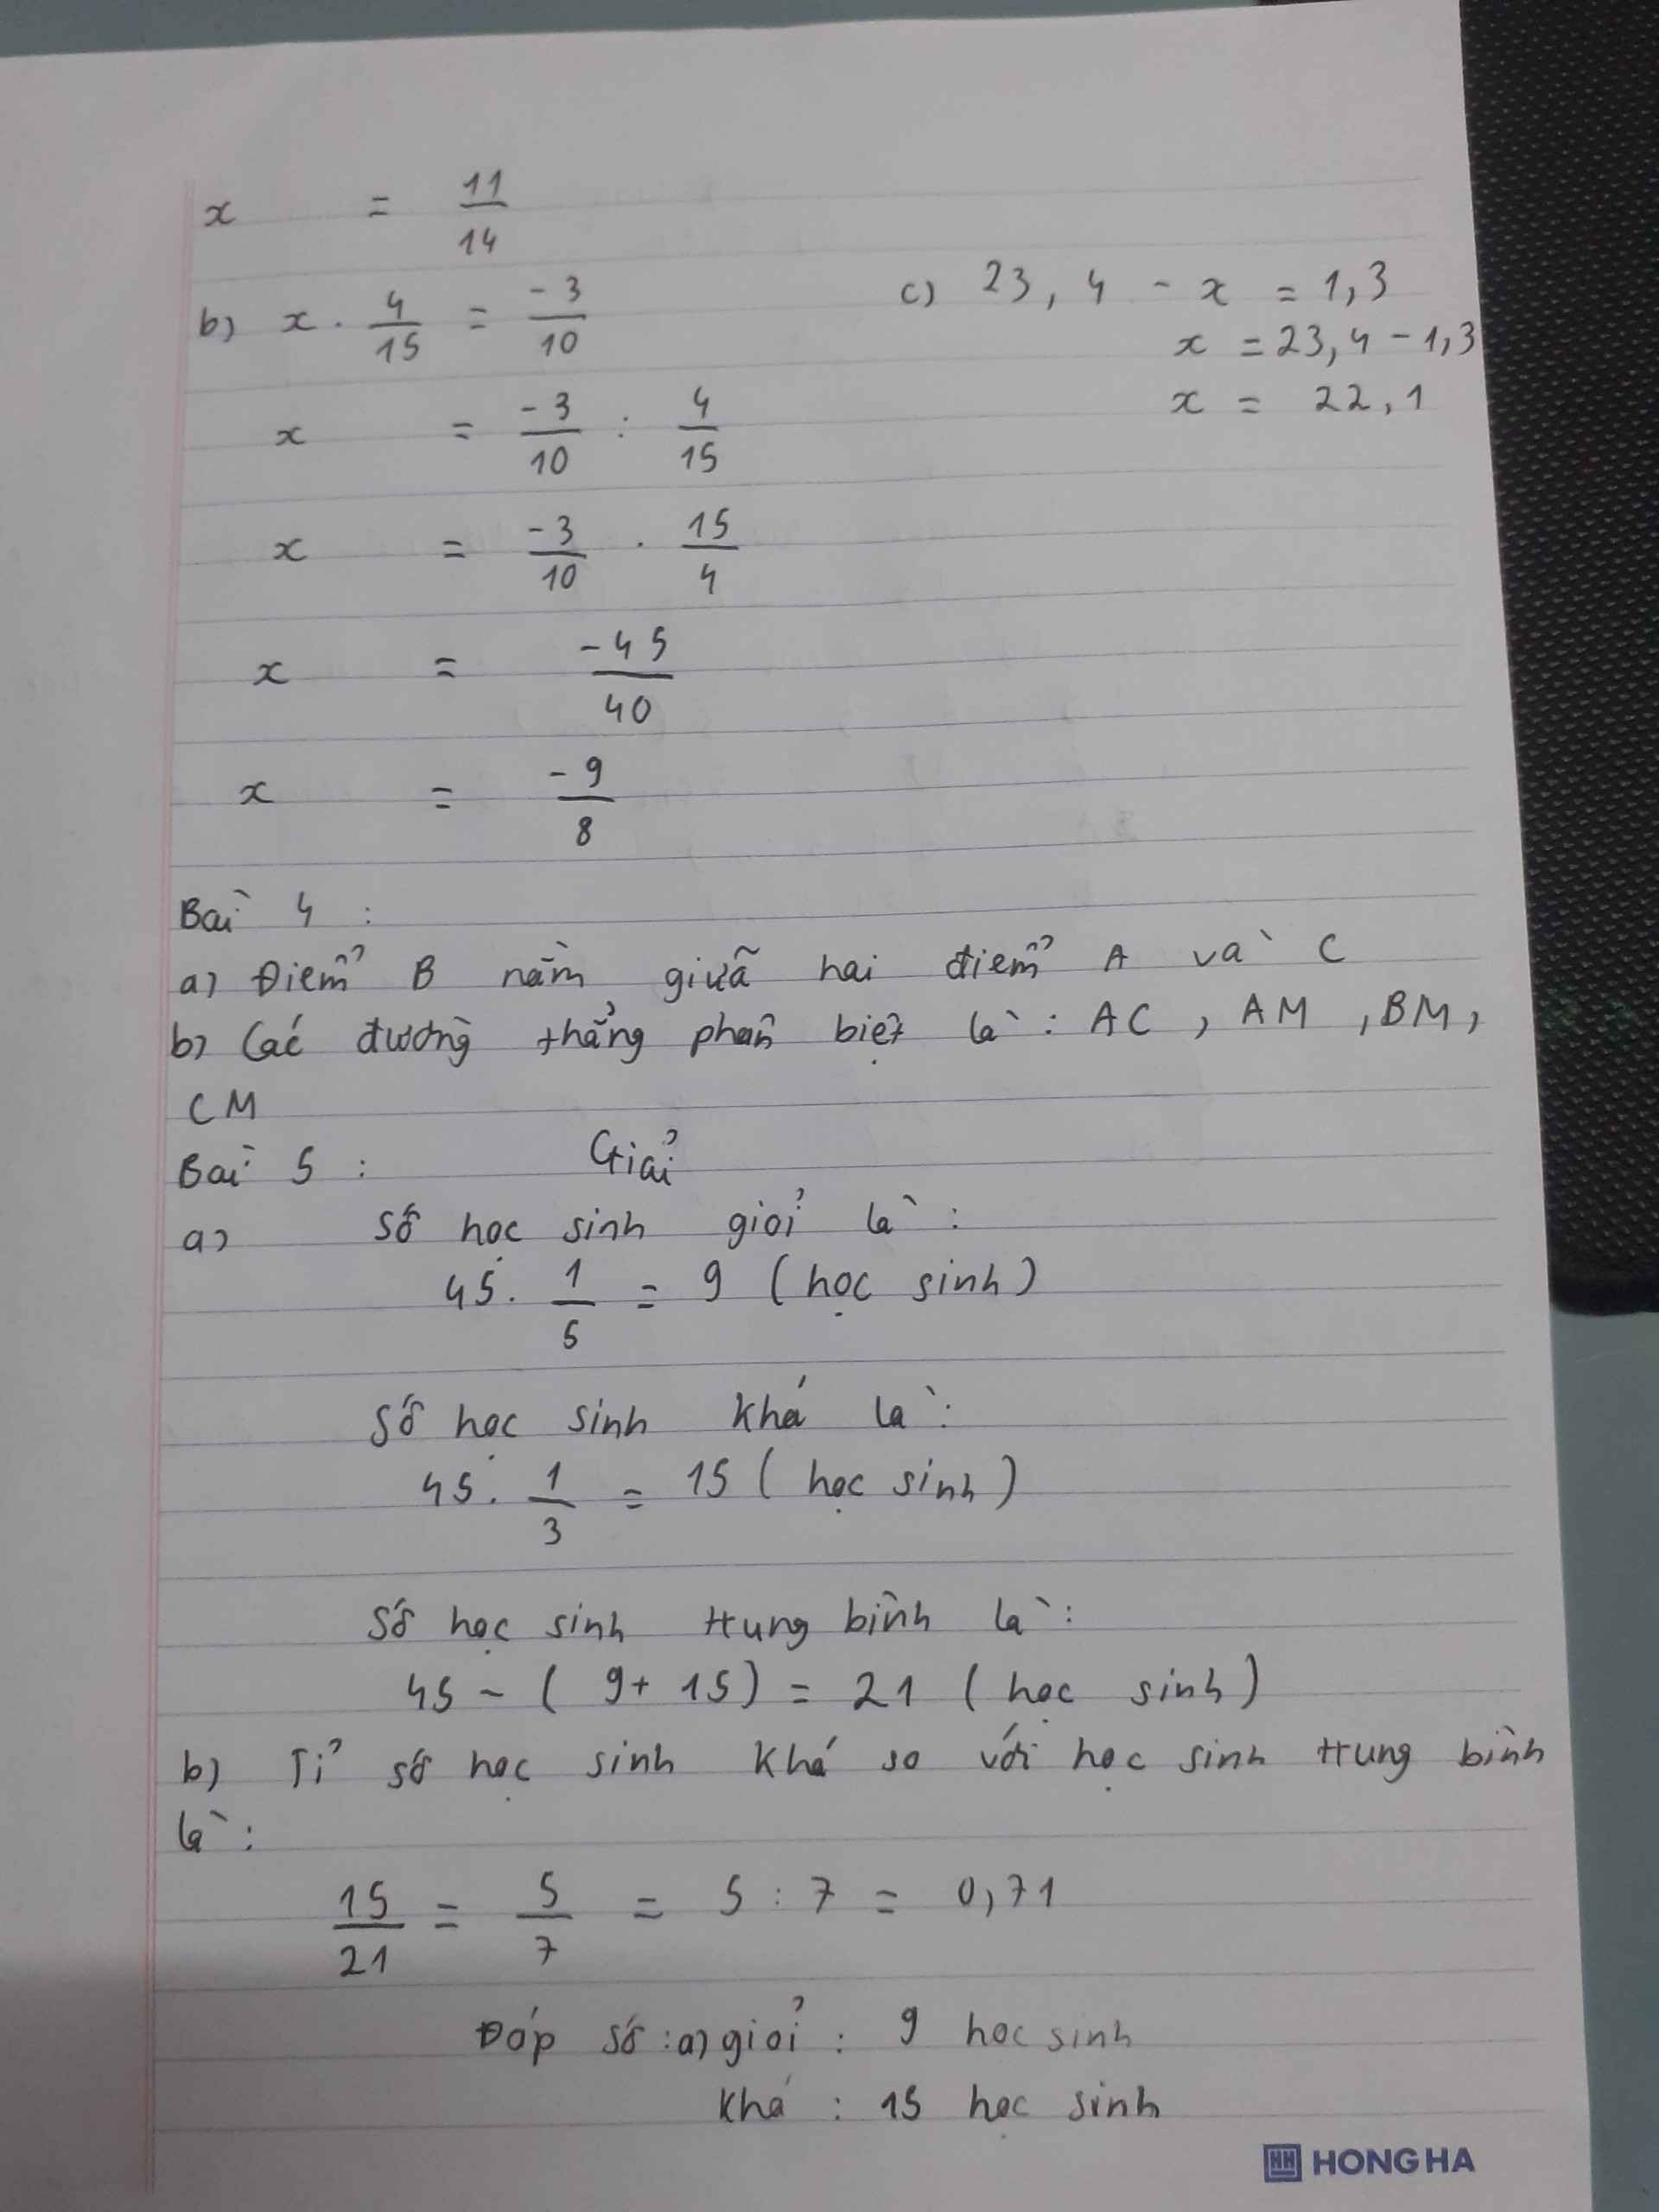 x = 11/14
b) x . 4/15 = -3/10
x = -3/10 : 4/15
x = -3/10 . 15/4
x = -45/40
x = -9/8
c) 23,4 - x = 1,3
x = 23,4 - 1,3
x = 22,1
Bài 4 :
a) Điểm B nằm giữa hai điểm A và C
b) Các đường thẳng phân biệt là : AC , AM , BM ,
CM
Bài 5 : Giải
a) Số học sinh giỏi là :
45 . 1/5 = 9 ( học sinh )
Số học sinh khá là :
45 . 1/3 = 15 ( học sinh )
Số học sinh trung bình là :
45 - ( 9 + 15 ) = 21 ( học sinh )
b) Tỉ số học sinh khá so với học sinh trung bình
là :
15/21 = 5/7 = 5 : 7 = 0,71
Đáp số : a) giỏi : 9 học sinh
Khá : 15 học sinh
HH HONG HA